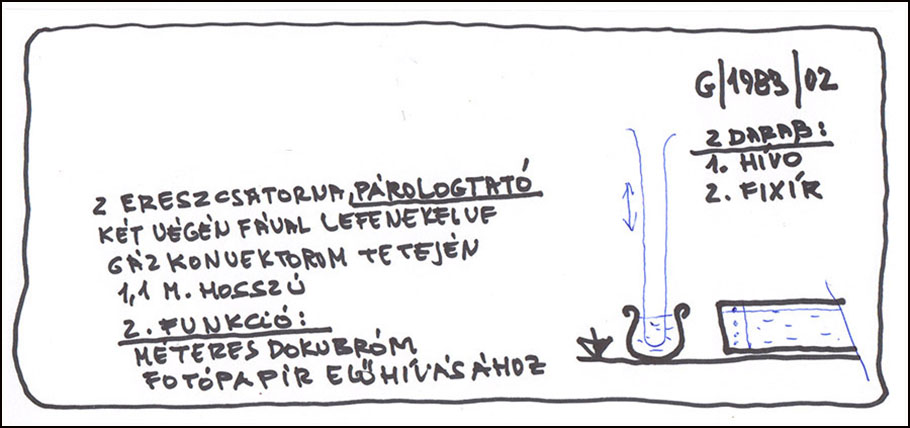 G/1983/02
2 DARAB:
1. HÍVO
2. FIXÍR
2 ERESZCSATORNA, PÁROLOGTATÓ
KÉT VÉGÉN FÁVAL LEFENEKELVE
GÁZ KONVEKTOROM TETEJÉN
1,1 M. HOSSZÚ
2. FUNKCIÓ:
MÉTERES DOKUBRÓM
FOTÓPAPÍR ELŐHÍVÁSÁHOZ